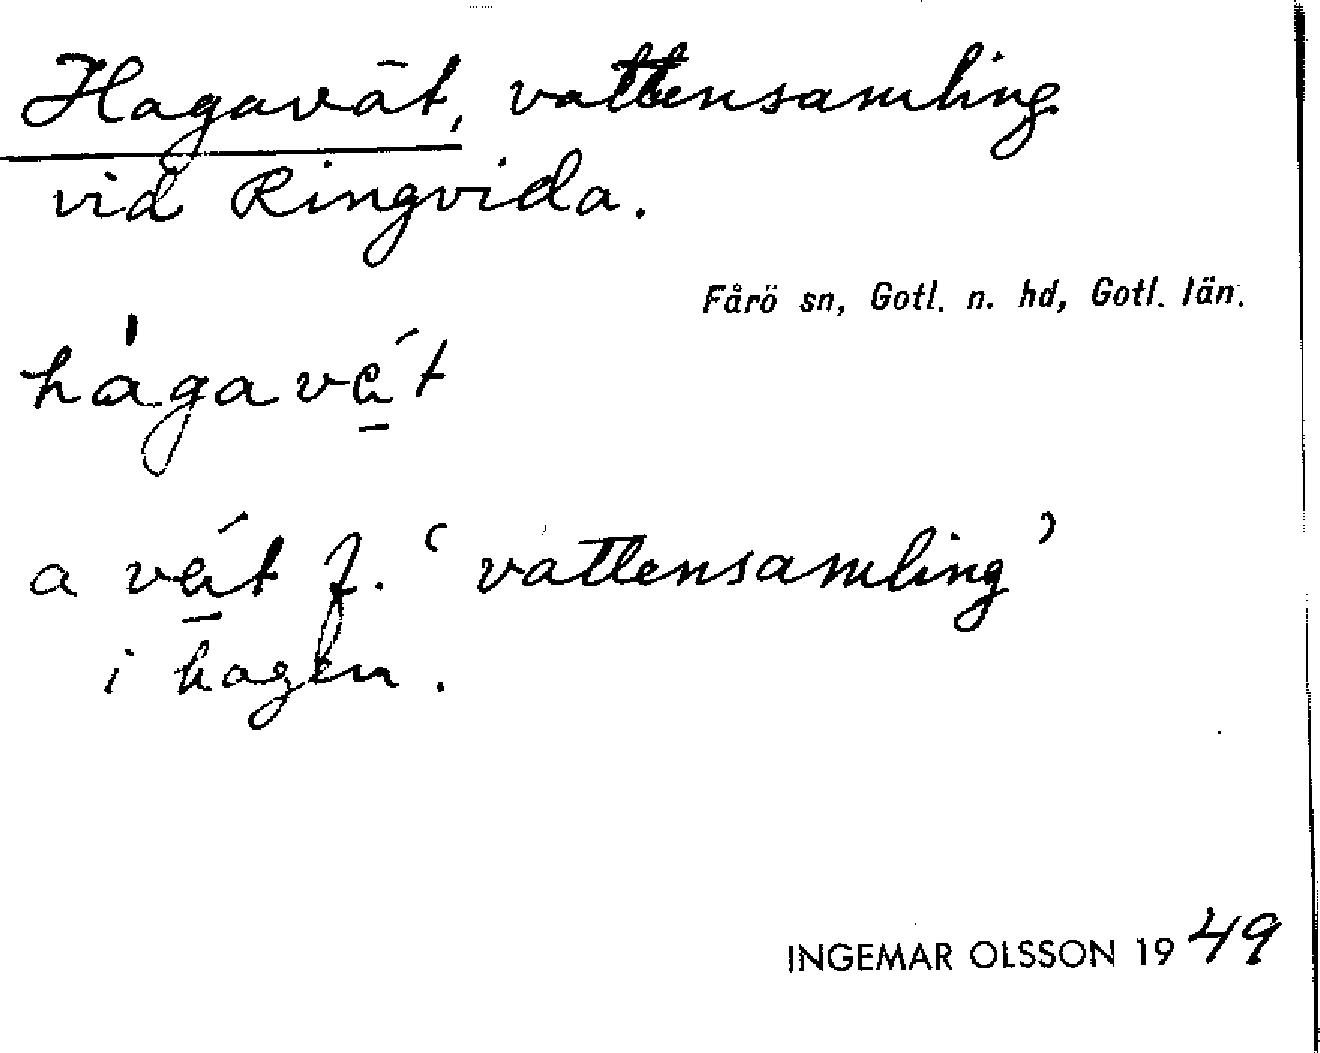 Hagavät, vattensamling
vid Ringvida.
Fårö sn, Gotl. n. hd, Gotl. län.
hágavä́t
a vä́t f. ‘vattensamling’
i hagen.
INGEMAR OLSSON 1949